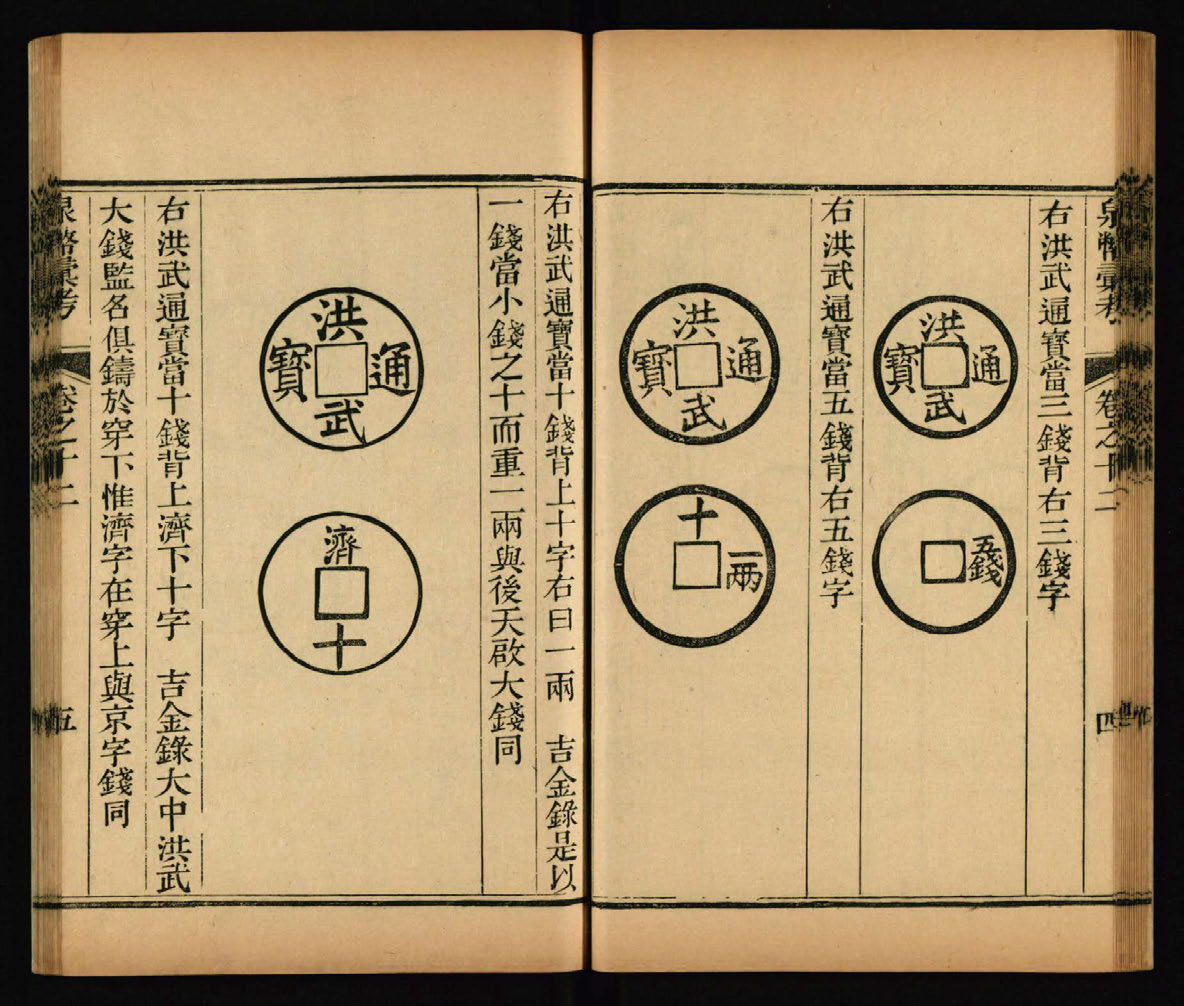 泉幣彙考
卷之十二
四
右洪武通寶當三錢背右三錢字
洪武通寶
五錢
右洪武通寶當五錢背右五錢字
洪武通寶
十
一兩
右洪武通寶當十錢背上十字右曰一兩 吉金錄是以
一錢當小錢之十而重一兩與後天啟大錢同
洪武通寶
濟
十
右洪武通寶當十錢背上濟下十字 吉金錄大中洪武
大錢監名俱鑄於穿下惟濟字在穿上與京字錢同
泉幣彙考
卷之十二
五